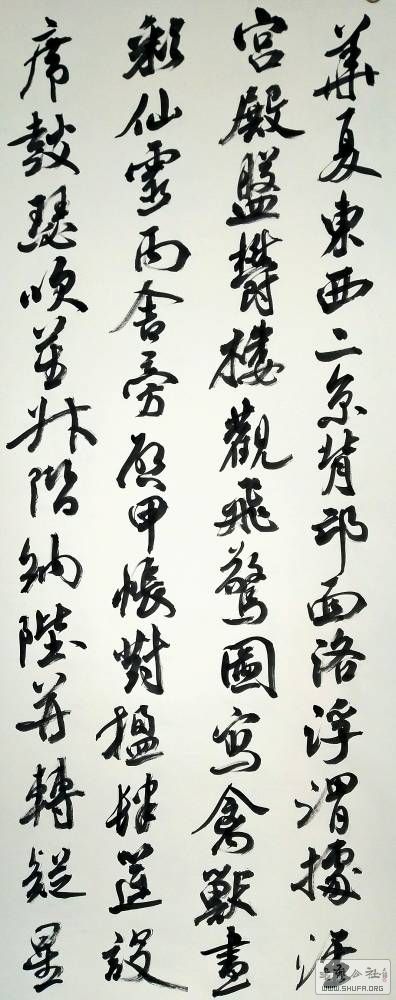 華夏東西二京背邙面洛浮渭據涇
宮殿盤鬱樓觀飛驚圖寫禽獸畫
彩仙靈丙舍旁啟甲帳對楹肆筵設
席鼓瑟吹笙升階納陛弁轉疑星
WWW.SHUFA.ORG